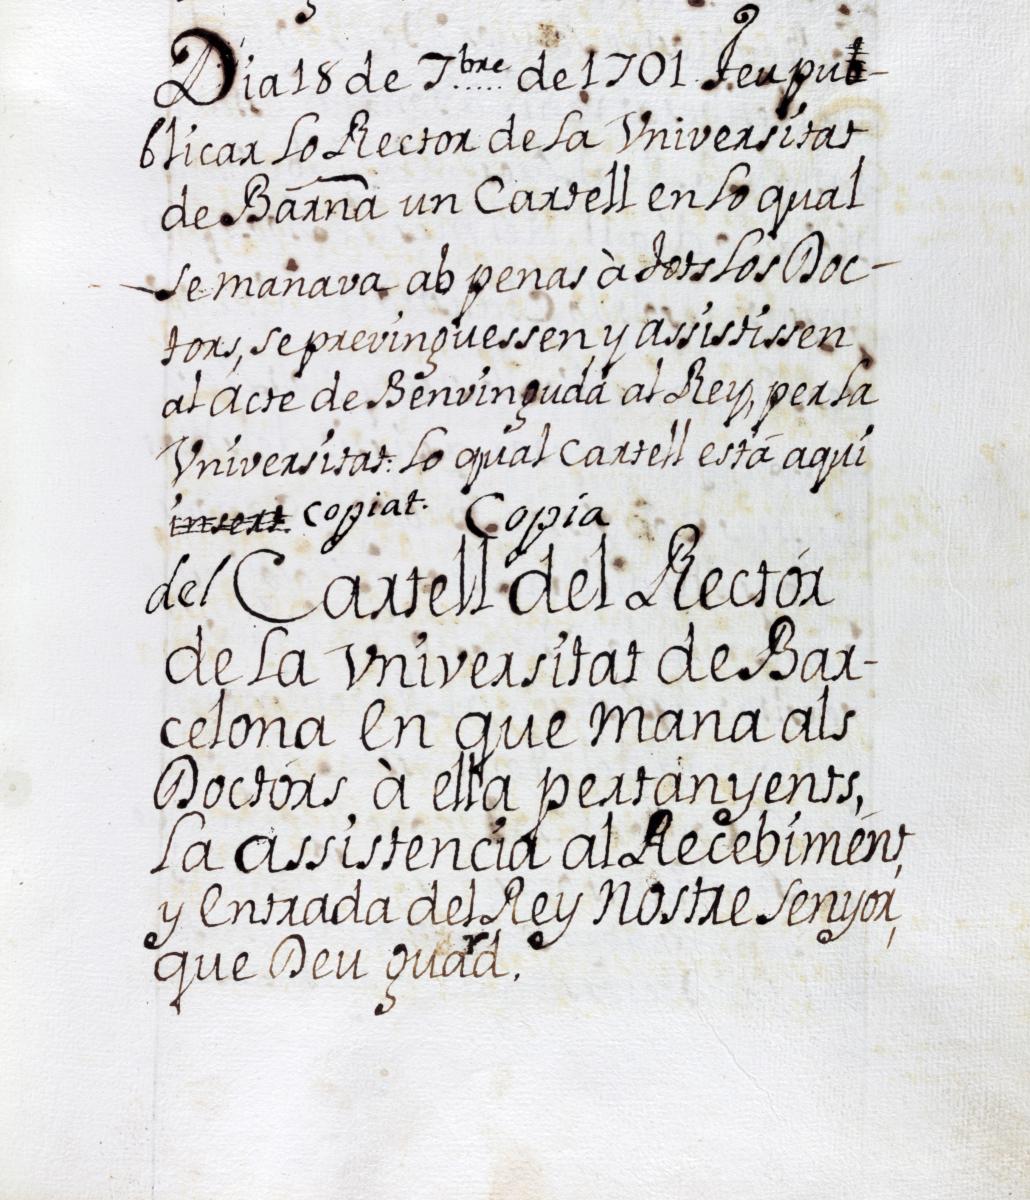 Dia 18 de 7.bre de 1701 feu pu-
blicar lo Rector de la Vniversitat
de Barna un Cartell en lo qual
se manava ab penas à tots los Doc-
tors, se previnguessen, y assistissen
al Acte de Benvingudá al Rey, per la
Vniversitat: lo qual Cartell está aqui
insert copiat. Copia
del Cartell del Rectór
de la Vniversitat de Bar-
celona en que mana als
Doctórs à ella pertányents,
la assistencia al Recebimént,
y entrada del Rey Nostre senyor,
que Deu guard.